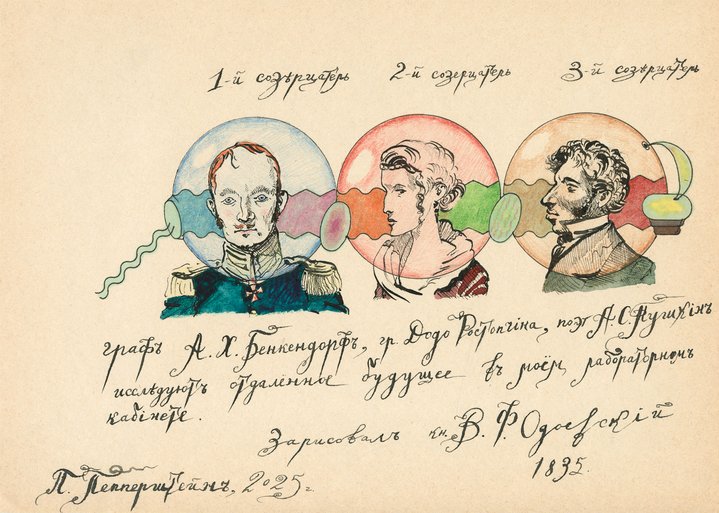 1-й созѣрцатѣрь 2-й созерцатерь 3-й созѣрцатѣрь
графъ А. Х. Бенкендорфъ, гр. Додо Ростопчіна, поэт А. С. Пушкінъ
исслѣдуютъ отдалённое будущее въ моём лабораторном
кабінете.
Зарисовалъ кн. В. Ф. Одоевскій
1835.
П. Пепперштейнъ, 2025 г.